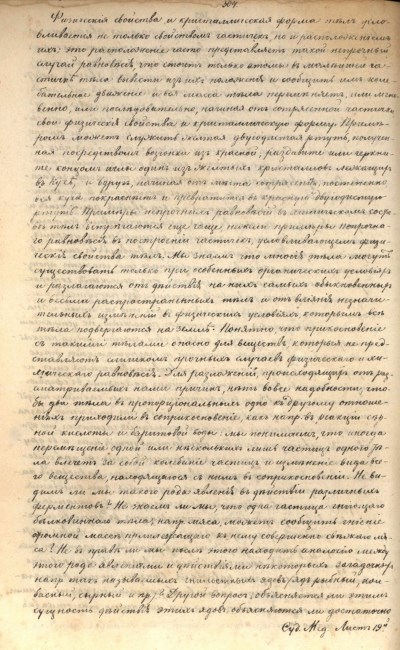 304
Физическія свойства и кристаллическая форма тѣлъ усло-
вливается не только свойствомъ частичекъ, но и расположеніемъ
ихъ; это расположеніе часто представляетъ такой непрочный
случай равновѣсія, что стоитъ только атомы въ
частичкѣ тѣла вывести изъ ихъ положенія и сообщить имъ коле-
бательное движеніе и вся масса тѣла перемѣняетъ, или мгно-
венно, или послѣдовательно, начиная отъ сотрясенной частички,
свои физическія свойства и кристаллическую форму. Примѣ-
ромъ можетъ служить желтая двуіодистая ртуть, получен-
ная посредствомъ возгонки изъ красной; раздавите или черкни-
те концомъ иглы одинъ изъ желтыхъ кристалловъ лежащихъ
въ кучѣ, и вдругъ, начиная отъ мѣста сотрясенія, постепенно
вся куча покраснѣетъ и превратится въ красную двуіодистую
ртуть. Примѣры непрочныхъ равновѣсій въ химическомъ соста-
вѣ тѣлъ встрѣчаются еще чаще нежели примѣры непрочна-
го равновѣсія въ построеніи частичекъ, условливающемъ физи-
ческія свойства тѣлъ. Мы знаемъ что многія тѣла могутъ
существовать только при особенныхъ органическихъ условіяхъ
и разлагаются отъ дѣйствія на нихъ самыхъ обыкновенныхъ
и всѣми распространенныхъ тѣлъ и отъ вліянія незначи-
тельныхъ измѣненій въ физическихъ условіяхъ которымъ всѣ
тѣла подвергаются на землѣ. Понятно, что прикосновеніе
съ такими тѣлами опасно для веществъ, которыя не пред-
ставляютъ слишкомъ прочныхъ случаевъ физическаго и хи-
мическаго равновѣсія. Для разложеній, происходящихъ отъ раз-
сматриваемыхъ нами причинъ, нѣтъ вовсе надобности, что-
бы два тѣла въ пропорціональномъ одно къ другому отноше-
ніяхъ приходили въ соприкосновеніе, какъ напр. въ реакціи сѣр-
ной кислоты и баритовой воды: мы понимаемъ, что иногда
перемѣщеніе одной или нѣсколькихъ лишь частицъ одного тѣ-
ла влечетъ за собой колебаніе частицъ и измѣненіе вида все-
го вещества, находящагося съ нимъ въ соприкосновеніи. Не ви-
димъ ли мы такого рода явленій въ дѣйствіи различныхъ
ферментовъ? Не знаемъ ли мы, что одна частица гніющаго
бѣлковиннаго тѣла, напр. мяса, можетъ сообщить гніеніе
огромной массѣ прилегающаго къ нему совершенно свѣжаго мя-
са? Не въ правѣ ли мы послѣ этого находить аналогію между
этого рода явленіями и дѣйствіями нѣкоторыхъ
напр. такъ называемыхъ гнилостныхъ ядовъ: ядъ рыбный, кол-
басный, сырный и пр.? Другой вопросъ, объясняется ли этимъ
сущность дѣйствія этихъ ядовъ, объясняется ли достаточно
Суд. Мед. Листъ 19й